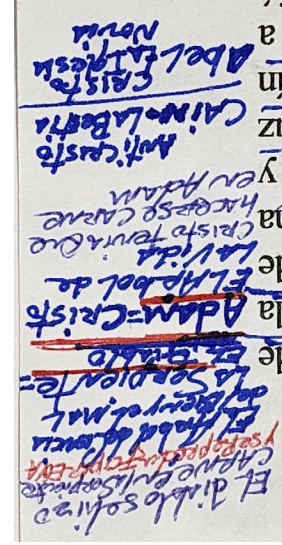 EL diablo se hizo
carne en la serpiente
y se reprodujo por EVA
El Arbol de
de Bien y el mal
La Serpiente =
EL DIABLO
Adam = Cristo
EL Arbol de
La Vida
Cristo tenia que
hacerse carne
en Adam
Anticristo
Cain = La Bestia
Cristo
Abel La Iglesia
Novia
de
la
de
na
y
uz
ín
a